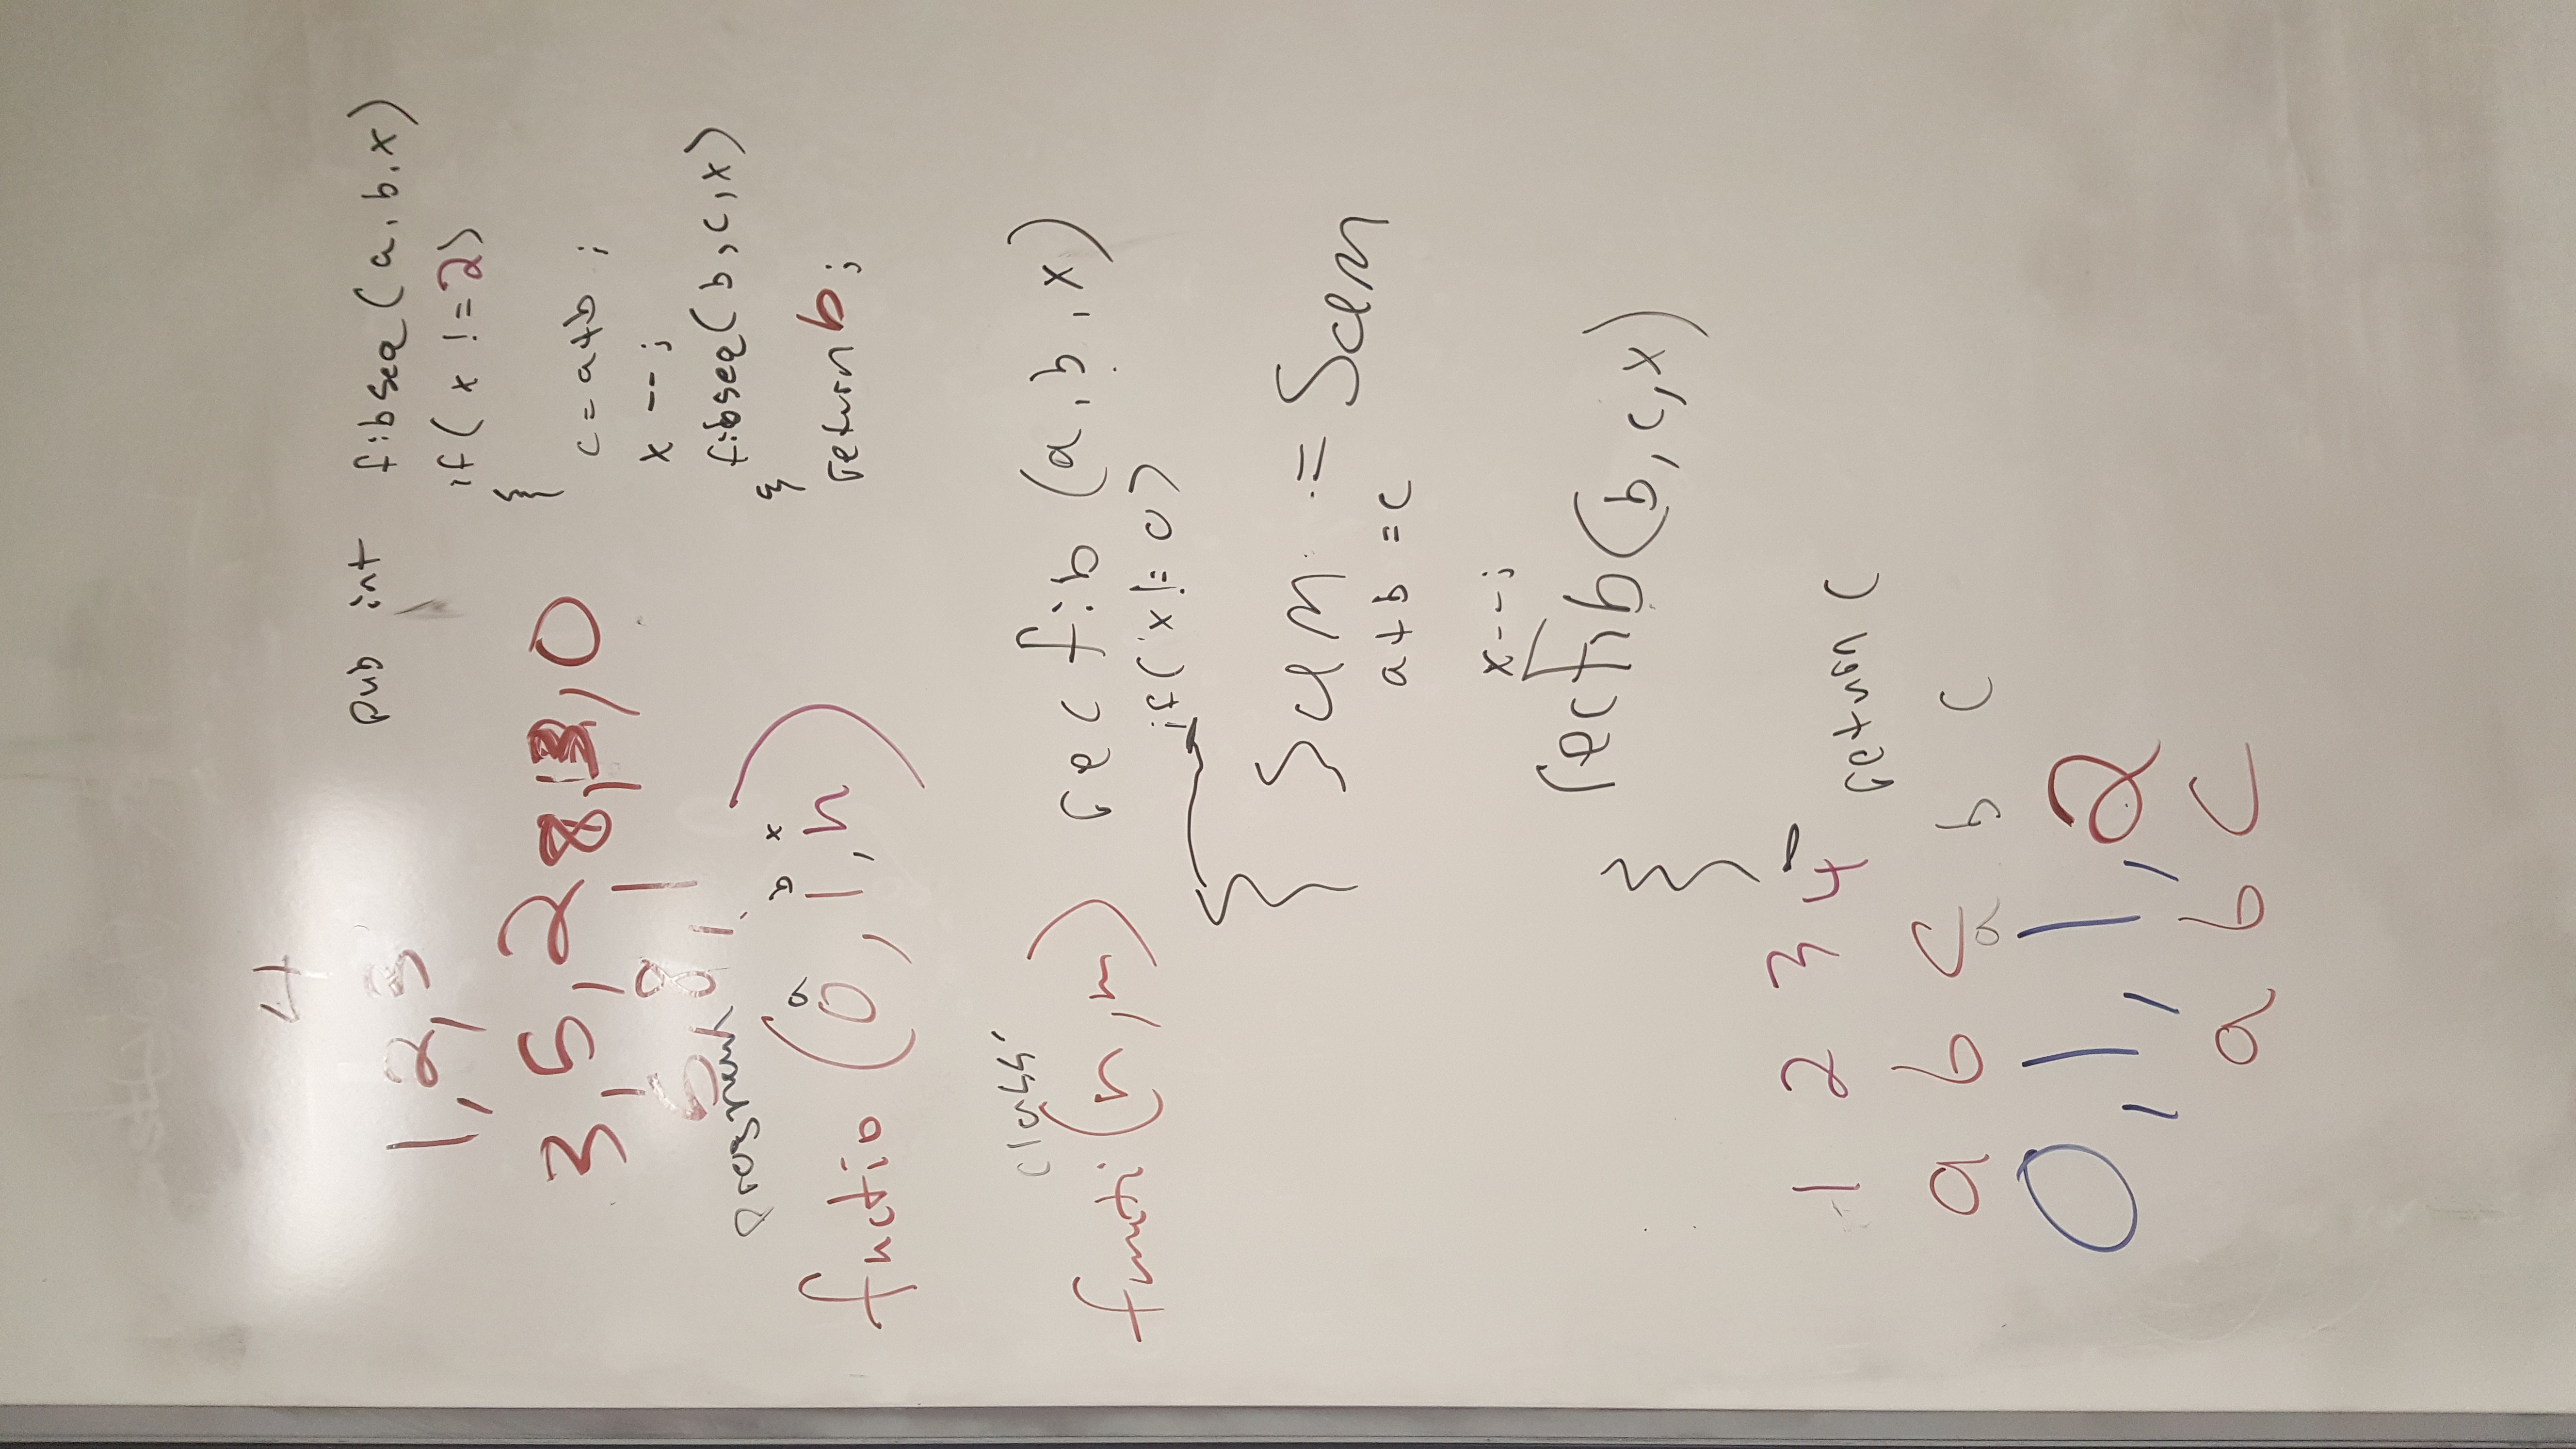 4
1, 2, 3
3, 5, 2 8, 13, 0
5, 8, 1
a b x
functio (0, 1, n)
pub int fibseq (a, b, x)
if ( x != 2)
{
c = a+b ;
x -- ;
fibseq ( b, c, x)
}
return b ;
class
functi (n, m)
rec fib (a, b, x)
if ( x != 0)
{
Sum = Sum
a + b = c
x -- ;
recFib (b, c, x)
}
return c
1 2 3 4
a b c
a b c
0, 1, 1, 2
a b c